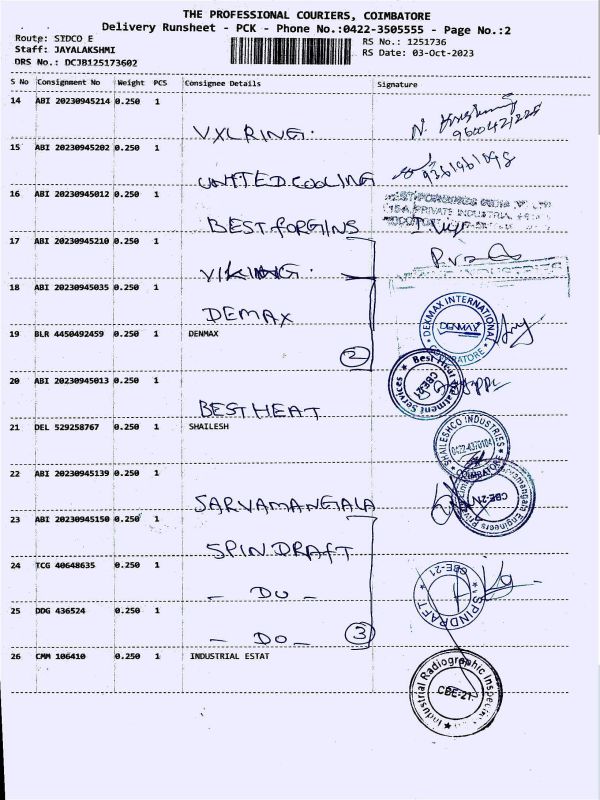 THE PROFESSIONAL COURIERS, COIMBATORE
Delivery Runsheet - PCK - Phone No.:0422-3505555 - Page No.:2
Route: SIDCO E
Staff: JAYALAKSHMI
DRS No.: DCJB125173602
RS No.: 1251736
RS Date: 03-Oct-2023
S No Consignment No Weight PCS Consignee Details Signature
14 ABI 20230945214 0.250 1
VXLRING.
9600421225
15 ABI 20230945202 0.250 1
UNITED COOLING
9361961098
16 ABI 20230945012 0.250 1
BEST forGINS
17 ABI 20230945210 0.250 1
VIKING.
18 ABI 20230945035 0.250 1
DEMAX
DEXMAX INTERNATIONAL
DENMAX
COIMBATORE
19 BLR 4450492459 0.250 1 DENMAX
2
20 ABI 20230945013 0.250 1
BEST HEAT
Best Heat Treatment Services
CBE-21
21 DEL 529258767 0.250 1 SHAILESH
SHAILESHCO INDUSTRIES
0422-4370104
COIMBATORE
22 ABI 20230945139 0.250 1
SARVAMANGALA
Sarvamangala Engineers Private
CBE-21
23 ABI 20230945150 0.250 1
SPINDRAFT
24 TCG 40648635 0.250 1
- DO -
SPINDRAFT
CBE-21
25 DDG 436524 0.250 1
- DO -
3
26 CMM 106410 0.250 1 INDUSTRIAL ESTAT
Industrial Radiographic Inspection
CBE-21.